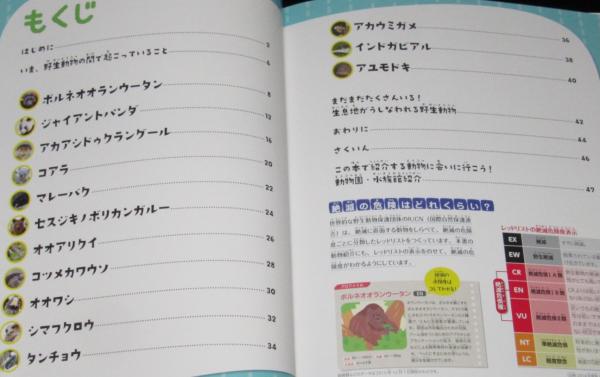 もくじ
はじめに 2
いま、野生動物の間で起こっていること 6
ボルネオオランウータン 8
ジャイアントパンダ 12
アカアシドゥクラングール 16
コアラ 20
マレーバク 22
セスジキノボリカンガルー 24
オオアリクイ 26
コツメカワウソ 28
オオワシ 30
シマフクロウ 32
タンチョウ 34
アカウミガメ 36
インドガビアル 38
アユモドキ 40
まだまだたくさんいる！
生息地がうしなわれる野生動物 42
おわりに 44
さくいん 46
この本で紹介する動物に会いに行こう！
動物園・水族館紹介 47
絶滅の危険はどれくらい？
世界的な野生動物保護団体のIUCN（国際自然保護連
合）は、絶滅に直面する動物をしらべて、絶滅の危険
度ごとに分類したレッドリストをつくっています。本書の
動物紹介にも、レッドリストの表示をのせて、絶滅の危
険度がわかるようにしています。
ボルネオオランウータン
レッドリストの絶滅危険度表示
EX 絶滅
EW 野生絶滅
絶滅危惧種
CR 絶滅危惧ⅠA類
EN 絶滅危惧ⅠB類
VU 絶滅危惧Ⅱ類
NT 準絶滅危惧
LC 軽度懸念